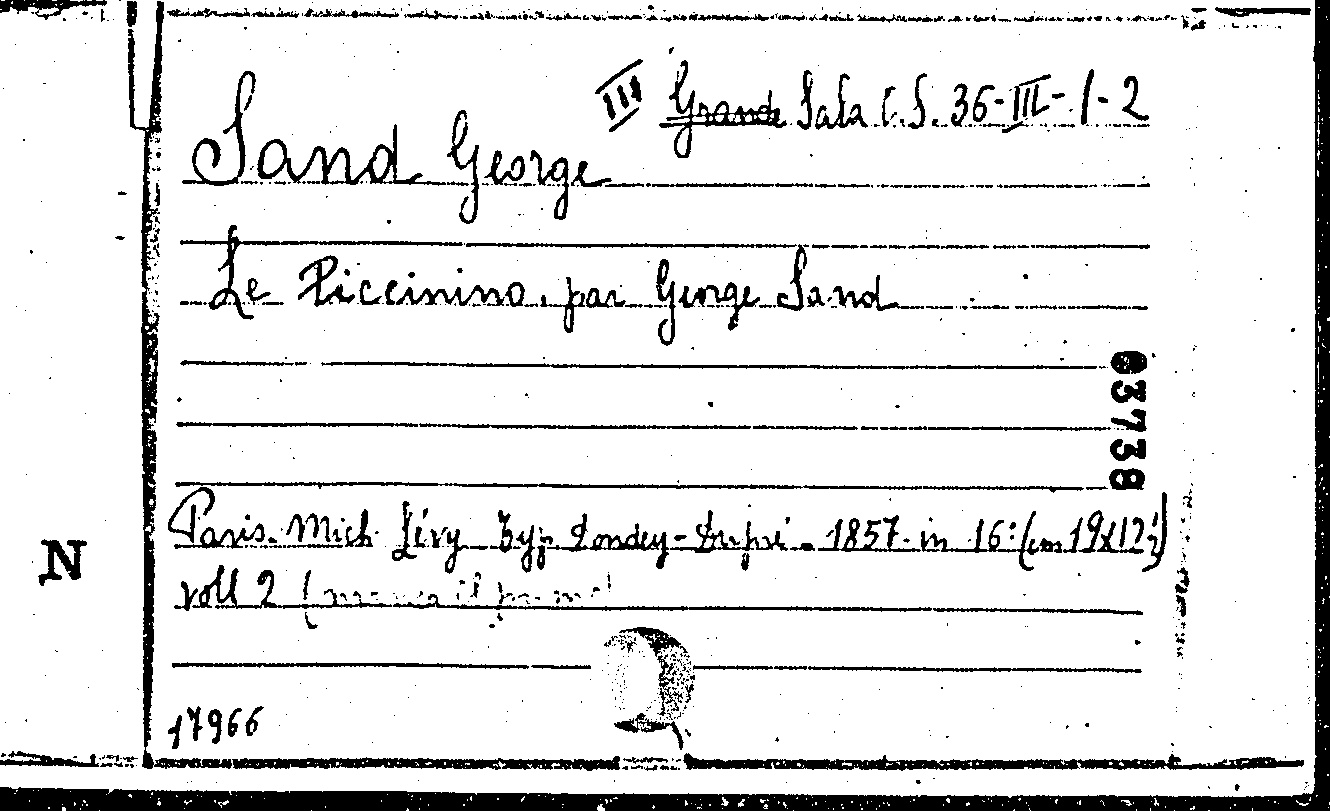 III Grande Sala C.S. 36-III-1-2
Sand George
Le Piccinino, par George Sand
63738
Paris. Mich. Lévy Typ. Dondey-Dupré. 1857. in 16:(cm 19X12½)
N
voll 2 (manca il primo)
17966